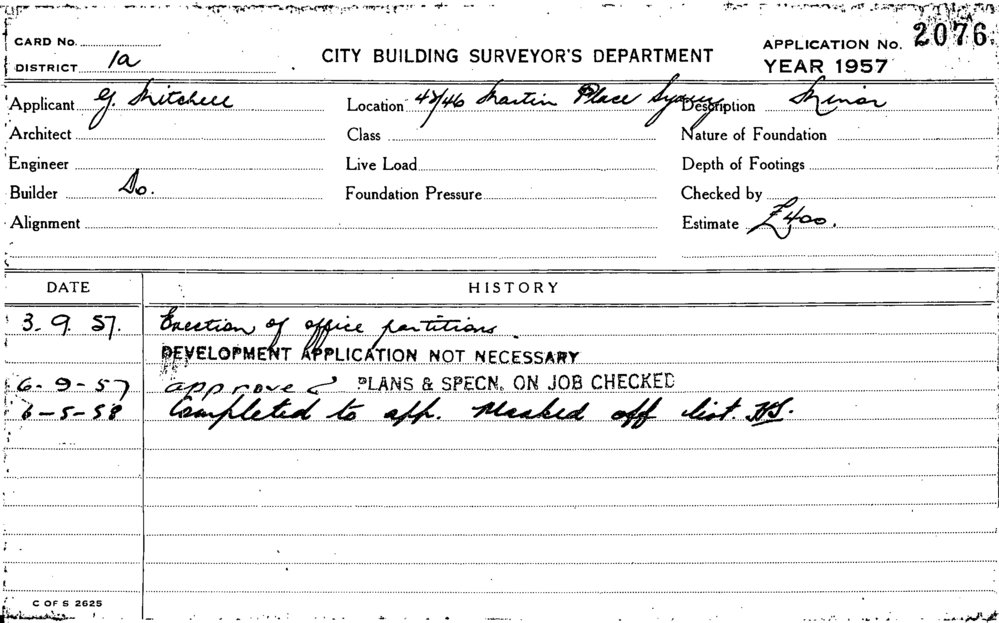 CARD No.
DISTRICT 1a
CITY BUILDING SURVEYOR'S DEPARTMENT
APPLICATION No. 2076
YEAR 1957
Applicant G. Mitchell Location 42/46 Martin Place Sydney Description Minor
Architect Class Nature of Foundation
Engineer Live Load Depth of Footings
Builder Do. Foundation Pressure Checked by
Alignment Estimate £400.
DATE HISTORY
3. 9. 57. Erection of office partitions
DEVELOPMENT APPLICATION NOT NECESSARY
6-9-57 approved PLANS & SPECN. ON JOB CHECKED
6-5-58 Completed to app. Marked off list. HS.
C OF S 2625